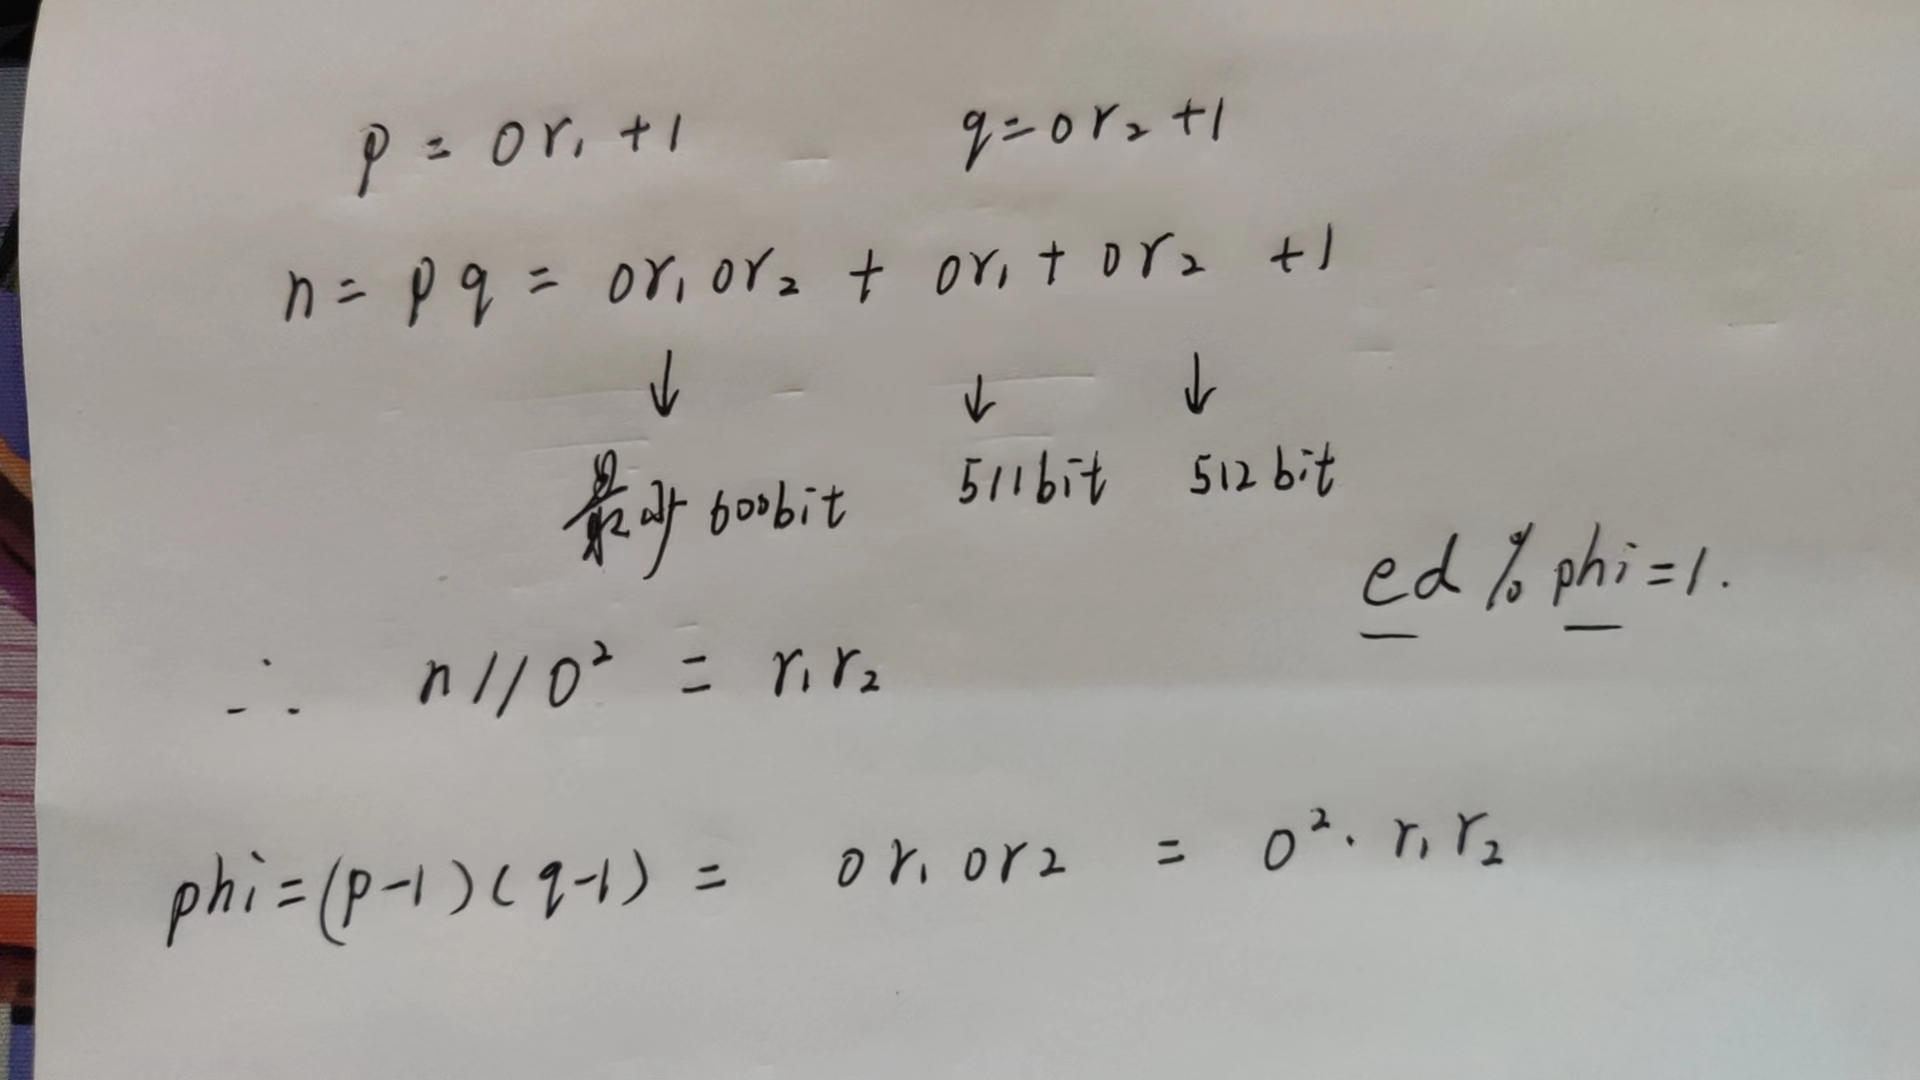 p = or₁ + 1 q = or₂ + 1
n = p q = or₁ or₂ + or₁ + or₂ + 1
↓ ↓ ↓
最少 600bit 511bit 512 bit
ed % phi = 1.
∴ n // o² = r₁ r₂
phi = (p-1)(q-1) = or₁ or2 = o² · r₁ r₂